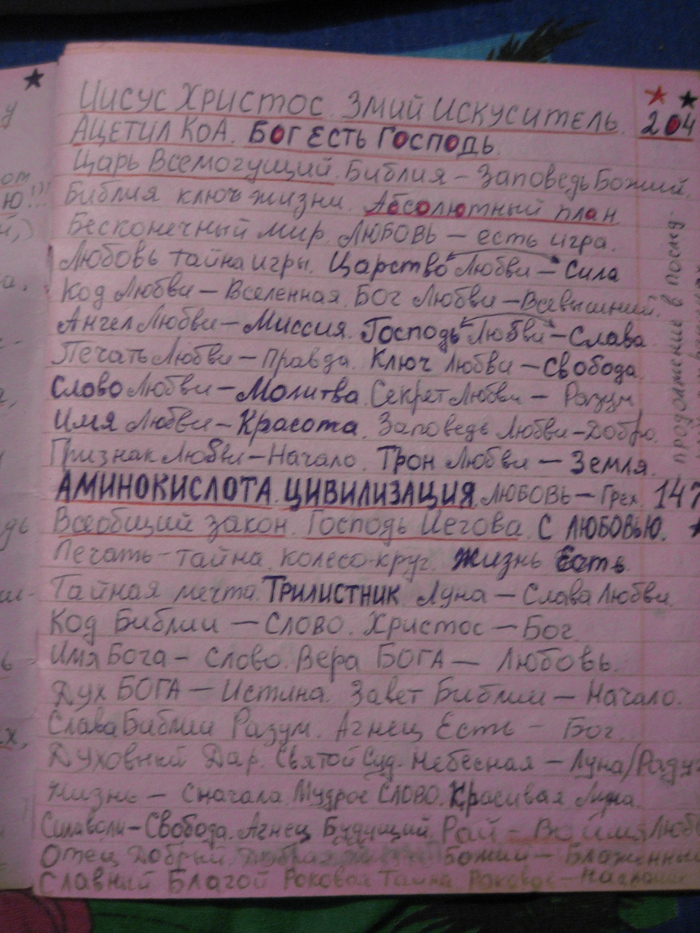 ИИСУС ХРИСТОС. ЗМИЙ ИСКУСИТЕЛЬ.
АЦЕТИЛ КОА. БОГ ЕСТЬ ГОСПОДЬ. 204
Царь Всемогущий. Библия – Заповедь Божий.
Библия ключ жизни. Абсолютный план
Бесконечный мир. ЛЮБОВЬ – есть игра.
Любовь тайна игры. Царство Любви – Сила
Код Любви – Вселенная. Бог Любви – Всевышний.
Ангел Любви – Миссия. Господь Любви – Слава
Печать Любви – Правда. Ключ Любви – Свобода
Слово Любви – Молитва. Секрет Любви – Разум
Имя Любви – Красота. Заповедь Любви – Добро.
Признак Любви – Начало. Трон Любви – Земля.
АМИНОКИСЛОТА. ЦИВИЛИЗАЦИЯ. ЛЮБОВЬ – Грех. 147
Всеобщий закон. Господь Иегова. С ЛЮБОВЬЮ.
Печать – тайна. колесо-круг. Жизнь Есть.
Тайная мечта. ТРИЛИСТНИК Луна – Слава Любви.
Код Библии – СЛОВО. Христос – Бог.
Имя Бога – Слово. Вера БОГА – Любовь.
Дух БОГА – Истина. Завет Библии – Начало.
Слава Библии Разум. Агнец Есть – Бог.
Духовный Дар. Святой Суд. Небесная – Луна/Радуг
Жизнь – Сначала. Мудрое СЛОВО. Красивая Луна.
Символи – Свобода. Агнец Будущий. Рай – Во Имя Любо
Отец Добрый Божии – Блаженный
Славный Благой Роковая Тайна Роковое –
продолжение в послед.